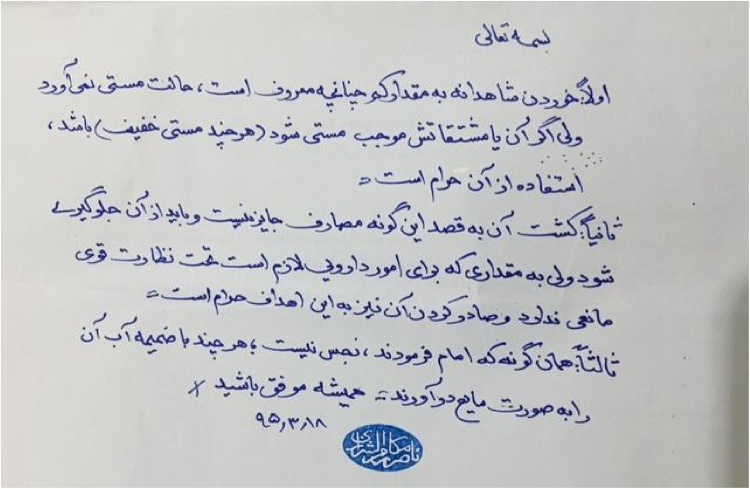 بسمه تعالی
اولاً: خوردن شاهدانه به مقدار کم چنانچه معروف است، حالت مستی نمی‌آورد
ولی اگر آن یا مشتقاتش موجب مستی شود (هرچند مستی خفیف) باشد،
استفاده از آن حرام است =
ثانیاً: کشت آن به قصد این گونه مصارف جایز نیست و باید از آن جلوگیری
شود ولی به مقداری که برای امور دارویی لازم است تحت نظارت قوی
مانعی ندارد و صادر کردن آن نیز به این اهداف حرام است =
ثالثاً: همان گونه که امام فرمودند، نجس نیست؛ هرچند با ضمیمه آب آن
را به صورت مایع درآورند = همیشه موفق باشید
۹۵٫۳٫۱۸
ناصر مکارم الشیرازی